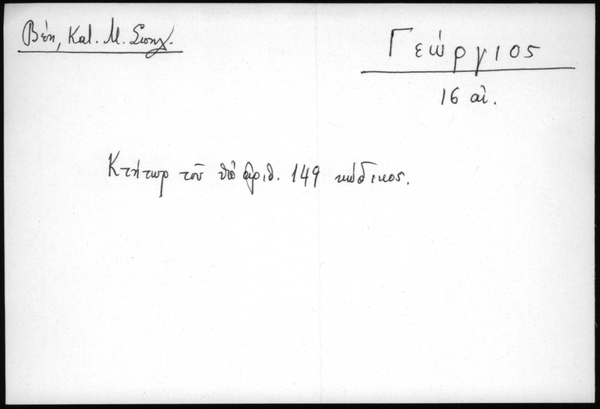 Βέη, Κατ. Μ. Σινη.
Γεώργιος
16 αἰ.
Κτήτωρ τοῦ ὑπ' ἀριθ. 149 κώδικος.